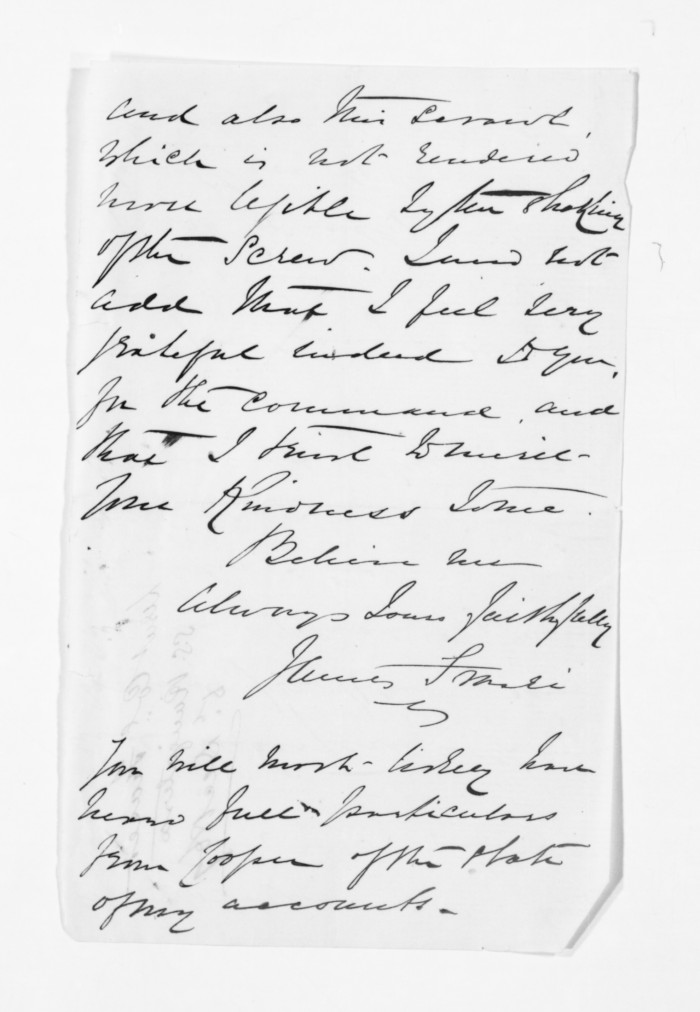 and also this scrawl,
which is not rendered
more legible by the shaking
of the Screw. I need not
add that I feel very
grateful indeed to you,
for the command, and
that I trust to merit
your Kindness to me.
Believe me
always Yours faithfully
James
You will most likely have
heard full particulars
from Cooper of the state
of my accounts.